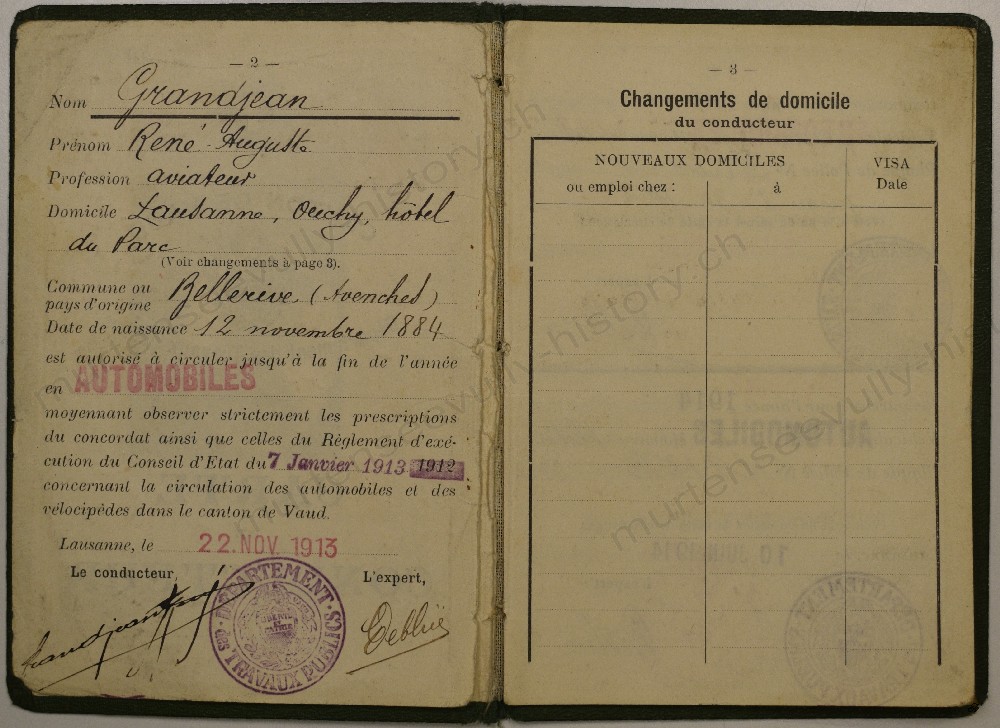 — 2 —
Nom Grandjean
Prénom René Auguste
Profession aviateur
Domicile Lausanne, Ouchy, hôtel
du Parc
(Voir changements à page 3).
Commune ou
pays d'origine Bellerive (Avenches)
Date de naissance 12 novembre 1884
est autorisé à circuler jusqu'à la fin de l'année
en AUTOMOBILES
moyennant observer strictement les prescriptions
du concordat ainsi que celles du Règlement d'exé-
cution du Conseil d'Etat du 7 Janvier 1913 1912
concernant la circulation des automobiles et des
vélocipèdes dans le canton de Vaud.
Lausanne, le 22. NOV. 1913
Le conducteur, L'expert,
Grandjean
DÉPARTEMENT
des TRAVAUX PUBLICS
— 3 —
Changements de domicile
du conducteur
NOUVEAUX DOMICILES
VISA
Date
ou emploi chez : à
1914
AUTOMOBILES
murtenseevully-history.ch
murtenseevully-history.ch